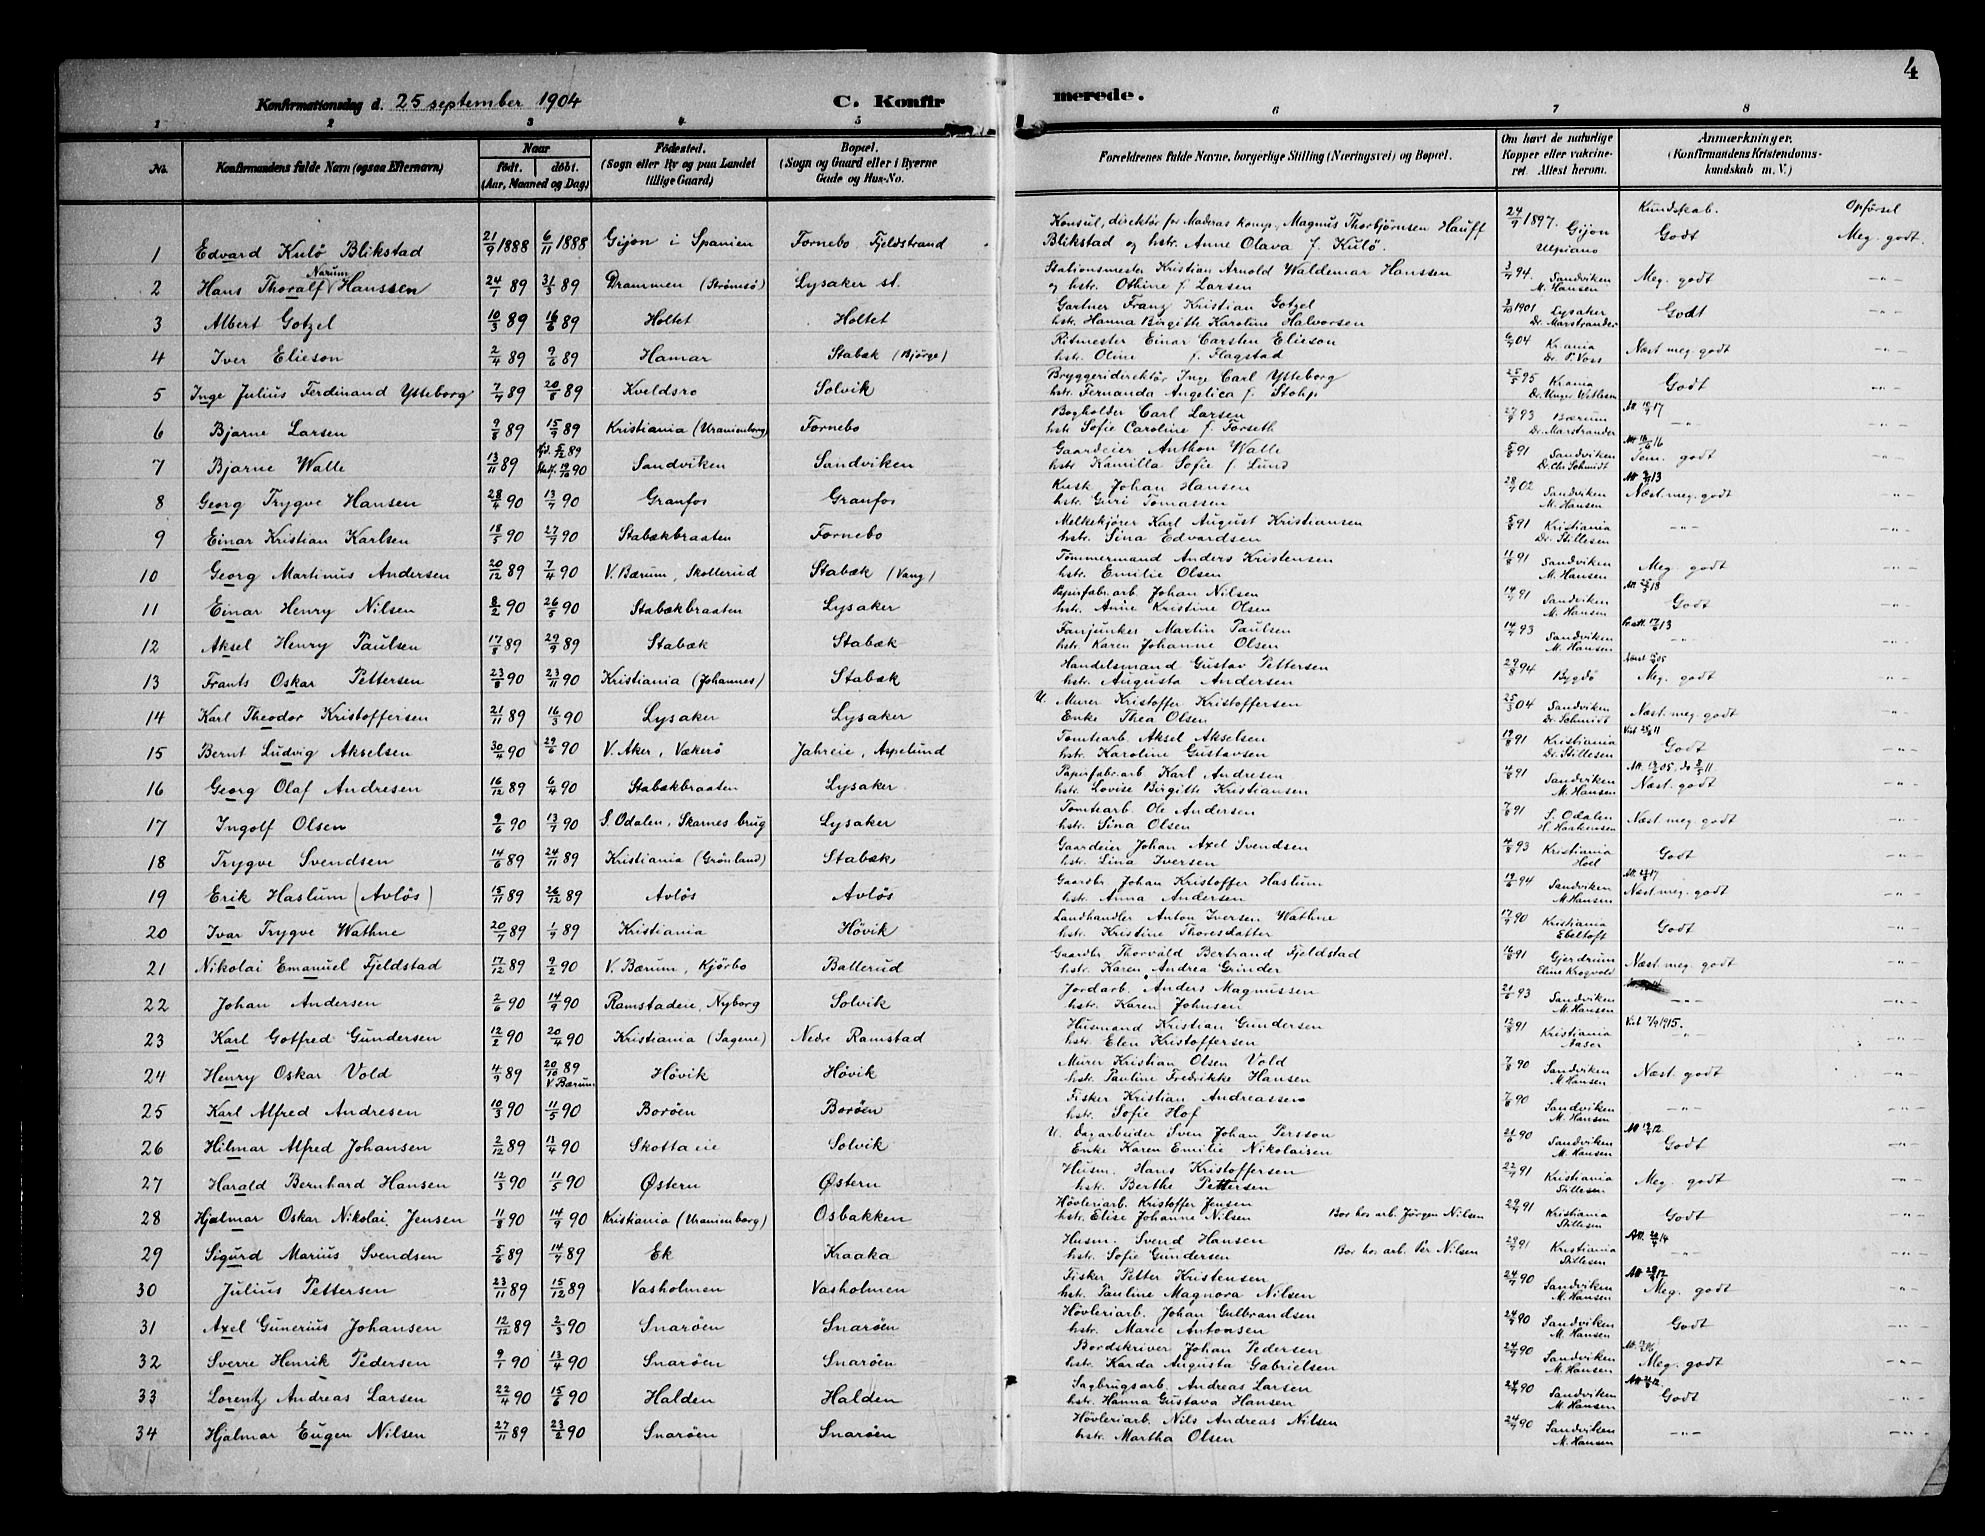 4
Konfirmationsdag d. 25 september 1904 C. Konfirmerede.
1 2 3 4 5 6 7 8
No. Konfirmandens fulde Navn (ogsaa Efternavn) Naar født. døbt. (Aar, Maaned og Dag) Fødested. (Sogn eller By og paa Landet tillige Gaard) Bopæl. (Sogn og Gaard eller i Byerne Gade og Hus-No. Forældrenes fulde Navne, borgerlige Stilling (Næringsvei) og Bopæl. Om havt de naturlige Kopper eller vakcineret. Attest herom. Anmærkninger. (Konfirmandens Kristendomskundskab m. V.)
Kundskab. Opførsel
1 Edvard Kulø Blikstad 21/9 1888 6/11 1888 Gijon i Spanien Fornebo, Fjeldstrand Konsul, direktør for Maderas komp, Magnus Thorbjørnsen Hauff 24/9 1897. Gijon Godt Meg. godt.
Blikstad og hstr. Anne Olava f. Kulø. Ulpiano
2 Hans Thoralf Narum Hanssen 24/1 89 31/3 89 Drammen (Strømsø) Lysaker st. Stationsmester Kristian Arnold Waldemar Hanssen 3/9 94. Sandviken Meg. godt -"-
og hstr. Othine f. Larsen M. Hansen
3 Albert Gotzel 10/3 89 16/6 89 Holtet Holtet Gartner Franz Kristian Gotzel 3/10 1901 Lysaker Godt -"-
hstr. Hanna Birgitte Karoline Halvorsen Dr. Marstrander
4 Iver Elieson 2/4 89 9/6 89 Hamar Stabæk (Bjørge) Ritmester Einar Carsten Elieson 6/9 04 Krania Næst meg. godt -"-
hstr. Oline f. Flagstad Dr. P. Voss
5 Inge Julius Ferdinand Ytteborg 7/7 89 20/8 89 Kveldsro Solvik Bryggeridirektør Inge Carl Ytteborg 25/5 95 Krania Godt -"-
hstr. Fernanda Angelica f. Stolp Dr. Unger Vetlesen
6 Bjarne Larsen 9/8 89 15/9 89 Kristiania (Uranienborg) Fornebo Bogholder Carl Larsen 27/9 93 Bærum -"- -"-
hstr. Sofie Caroline f. Forseth Dr. Marstrander
7 Bjarne Walle 13/11 89 Sandviken Sandviken Gaardeier Anthon Walle 5/8 91 Sandviken Tem. godt -"-
hstr. Kamilla Sofie f. Lund Dr. Chr. Schmidt
8 Georg Trygve Hansen 28/4 90 13/7 90 Granfos Granfos Kusk Johan Hansen 28/9 02 Sandviken Næst meg. godt -"-
hstr. Guri Tomassen M. Hansen
9 Einar Kristian Karlsen 18/5 90 27/7 90 Stabækbraaten Fornebo Melkekjører Karl August Kristiansen 5/8 91 Kristiania -"- -"-
hstr. Sina Edvardsen Dr. Stillesen
10 Georg Martinus Andersen 20/12 89 7/4 90 V. Bærum, Skollerud Stabæk (Vang) Tømmermand Anders Kristensen 11/8 91 Sandviken Meg. godt -"-
hstr. Emilie Olsen M. Hansen
11 Einar Henry Nilsen 8/2 90 26/5 90 Stabækbraaten Lysaker Papirfabr. arb. Johan Nilsen 14/9 91 Sandviken Godt -"-
hstr. Anne Kristine Olsen M. Hansen
12 Aksel Henry Paulsen 17/8 89 29/9 89 Stabæk Stabæk Fanjunker Martin Paulsen 14/9 93 Sandviken -"- -"-
hstr. Karen Johanne Olsen M. Hansen
13 Frants Oskar Pettersen 23/8 90 23/11 90 Kristiania (Johannes) Stabæk Handelsmand Gustav Pettersen 29/8 94 Bygdø Meg. godt -"-
hstr. Augusta Andersen
14 Karl Theodor Kristoffersen 21/11 89 16/3 90 Lysaker Lysaker U. Murer Kristoffer Kristoffersen 25/3 04 Sandviken Næst meg. godt -"-
Enke Thea Olsen Dr. Schmidt
15 Bernt Ludvig Akselsen 30/4 90 29/6 90 V. Aker, Vækerø Jahreie, Aspelund Tomtearb. Aksel Akselsen 19/8 91 Kristiania Godt -"-
hstr. Karoline Gustavsen Dr. Stillesen
16 Georg Olaf Andresen 16/12 89 6/4 90 Stabækbraaten Lysaker Papirfabr. arb Karl Andresen 4/8 91 Sandviken Næst. godt -"-
hstr. Lovise Birgitte Kristiansen M. Hansen
17 Ingolf Olsen 9/6 90 13/7 90 S. Odalen, Skarnes brug Lysaker Tomtearb. Ole Andersen 7/8 91 S. Odalen Næst meg. godt -"-
hstr. Sina Olsen H. Haakensen
18 Trygve Svendsen 14/6 89 24/11 89 Kristiania (Grønland) Stabæk Gaardeier Johan Axel Svendsen 4/8 93 Kristiania Godt -"-
hstr. Lina Iversen Hoel
19 Erik Haslum (Avløs) 15/11 89 26/12 89 Avløs Avløs Gaardbr. Johan Kristoffer Haslum 19/6 94 Sandviken Næst meg. godt -"-
hstr. Anna Andersen M. Hansen
20 Ivar Trygve Wathne 20/7 89 1/9 89 Kristiania Høvik Landhandler Anton Iversen Wathne 17/9 90 Kristiania Godt -"-
hstr. Kristine Thoresdatter Ebeltoft
21 Nikolai Emanuel Fjeldstad 17/12 89 9/2 90 V. Bærum, Kjørbo Ballerud Gaardbr. Thorvald Bertrand Fjeldstad 16/6 91 Gjerdrum Næst meg. godt -"-
hstr. Karen Andrea Grinder Eline Krogvold
22 Johan Andersen 2/6 90 14/9 90 Ramstadeie, Nyborg Solvik Jordarb. Anders Magnussen 21/6 93 Sandviken -"- -"-
hstr. Karen Johnsen M. Hansen
23 Karl Gotfred Gundersen 12/2 90 20/4 90 Kristiania (Sagene) Nedre Ramstad Husmand Kristian Gundersen 12/8 91 Kristiania Vid 7/9 1915. -"-
hstr. Elen Kristoffersen Aaser
24 Henry Oskar Vold 4/9 89 20/10 89 V. Bærum Høvik Høvik Murer Kristian Olsen Vold 7/8 90 Sandviken Næst. godt -"-
hstr. Pauline Fredrikke Hansen M. Hansen
25 Karl Alfred Andresen 10/3 90 11/5 90 Borøen Borøen Fisker Kristian Andreassen 7/8 90 Sandviken -"- -"-
hstr. Sofie Hof M. Hansen
26 Hilmar Alfred Johansen 2/12 89 13/4 90 Skottaeie Solvik U. Dagarbeider Sven Johan Persson 21/6 90 Sandviken Godt -"-
Enke Karen Emilie Nikolaisen M. Hansen
27 Harald Bernhard Hansen 12/3 90 11/5 90 Østern Østern Husm. Hans Kristoffersen 22/9 91 Kristiania Meg. godt -"-
hstr. Berthe Pettersen Stillesen
28 Hjalmar Oskar Nikolai Jensen 11/8 90 14/9 90 Kristiania (Uranienborg) Osbakken Høvleriarb. Kristoffer Jensen 29/9 91 Kristiania Godt -"-
hstr. Elise Johanne Nilsen Bor hos arb. Jørgen Nilsen Stillesen
29 Sigurd Marius Svendsen 5/6 89 14/7 89 Ek Kraaka Husm. Svend Hansen 29/9 91 Kristiania -"- -"-
hstr. Sofie Gundersen Bor hos arb. Per Nilsen Stillesen
30 Julius Pettersen 23/11 89 15/12 89 Vasholmen Vasholmen Fisker Petter Kristensen 24/9 90 Sandviken Meg. godt -"-
hstr. Pauline Magnora Nilsen M. Hansen
31 Axel Gunerius Johansen 12/12 89 2/3 90 Snarøen Snarøen Høvleriarb. Johan Gulbrandsen 24/9 90 Sandviken Godt -"-
hstr. Marie Antonsen M. Hansen
32 Sverre Henrik Pedersen 9/1 90 13/4 90 Snarøen Snarøen Bordskriver Johan Pedersen 24/9 90 Sandviken Meg. godt -"-
hstr. Karda Augusta Gabrielsen M. Hansen
33 Lorentz Andreas Larsen 22/4 90 15/6 90 Halden Halden Sagbrugsarb. Andreas Larsen 24/9 90 Sandviken Godt -"-
hstr. Hanna Gustava Hansen M. Hansen
34 Hjalmar Eugen Nilsen 27/11 89 23/2 90 Snarøen Snarøen Høvleriarb. Nils Andreas Nilsen 24/9 90 Sandviken -"- -"-
hstr. Martha Olsen M. Hansen